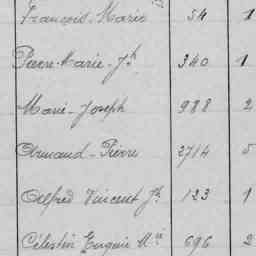 François-Marie 54 1
Pierre-Marie-Jh 340 1
Marie-Joseph 988 2
Armand-Pierre 2714 5
Alfred Vincent Jh 123 1
Célestin Eugène Mie 696 2